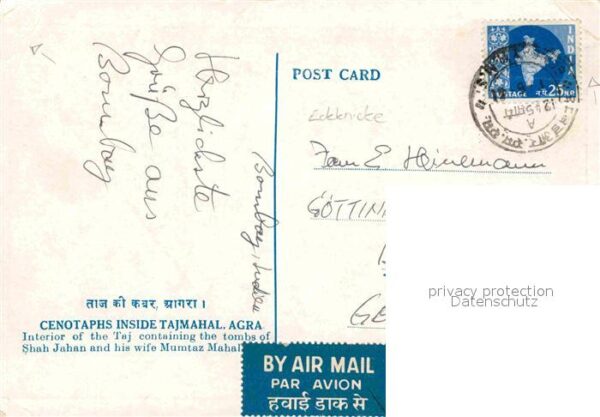 Herzlichste
Grüße aus
Bombay
Bombay, Indien
ताज की कबर, आगरा ।
CENOTAPHS INSIDE TAJMAHAL, AGRA
Interior of the Taj containing the tombs of
Shah Jahan and his wife Mumtaz Mahal
POST CARD
INDIA
POSTAGE न.पै. 25 NP.
Fam E. Heinemann
GÖTTIN
GE
privacy protection
Datenschutz
BY AIR MAIL
PAR AVION
हवाई डाक से